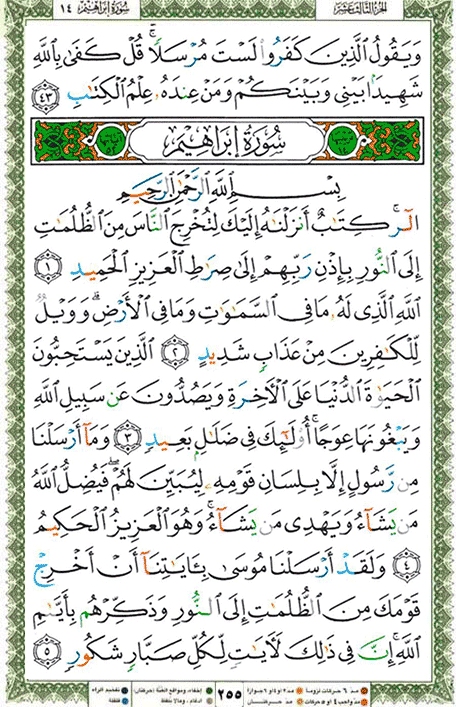 الجزء الثالث عشر
سورة إبراهيم ١٤
وَيَقُولُ الَّذِينَ كَفَرُوا لَسْتَ مُرْسَلًا ۚ قُلْ كَفَىٰ بِاللَّهِ
شَهِيدًا بَيْنِي وَبَيْنَكُمْ وَمَنْ عِندَهُ عِلْمُ الْكِتَابِ ٤٣
سُورَةُ إِبْرَاهِيمَ
بِسْمِ اللَّهِ الرَّحْمَٰنِ الرَّحِيمِ
الٓر ۚ كِتَابٌ أَنزَلْنَاهُ إِلَيْكَ لِتُخْرِجَ النَّاسَ مِنَ الظُّلُمَاتِ
إِلَى النُّورِ بِإِذْنِ رَبِّهِمْ إِلَىٰ صِرَاطِ الْعَزِيزِ الْحَمِيدِ ١
اللَّهِ الَّذِي لَهُ مَا فِي السَّمَاوَاتِ وَمَا فِي الْأَرْضِ ۗ وَوَيْلٌ
لِّلْكَافِرِينَ مِنْ عَذَابٍ شَدِيدٍ ٢ الَّذِينَ يَسْتَحِبُّونَ
الْحَيَاةَ الدُّنْيَا عَلَى الْآخِرَةِ وَيَصُدُّونَ عَن سَبِيلِ اللَّهِ
وَيَبْغُونَهَا عِوَجًا ۚ أُولَٰئِكَ فِي ضَلَالٍ بَعِيدٍ ٣ وَمَا أَرْسَلْنَا
مِن رَّسُولٍ إِلَّا بِلِسَانِ قَوْمِهِ لِيُبَيِّنَ لَهُمْ ۖ فَيُضِلُّ اللَّهُ
مَن يَشَاءُ وَيَهْدِي مَن يَشَاءُ ۚ وَهُوَ الْعَزِيزُ الْحَكِيمُ
٤ وَلَقَدْ أَرْسَلْنَا مُوسَىٰ بِآيَاتِنَا أَنْ أَخْرِجْ
قَوْمَكَ مِنَ الظُّلُمَاتِ إِلَى النُّورِ وَذَكِّرْهُم بِأَيَّامِ
اللَّهِ ۚ إِنَّ فِي ذَٰلِكَ لَآيَاتٍ لِّكُلِّ صَبَّارٍ شَكُورٍ ٥
٢٥٥